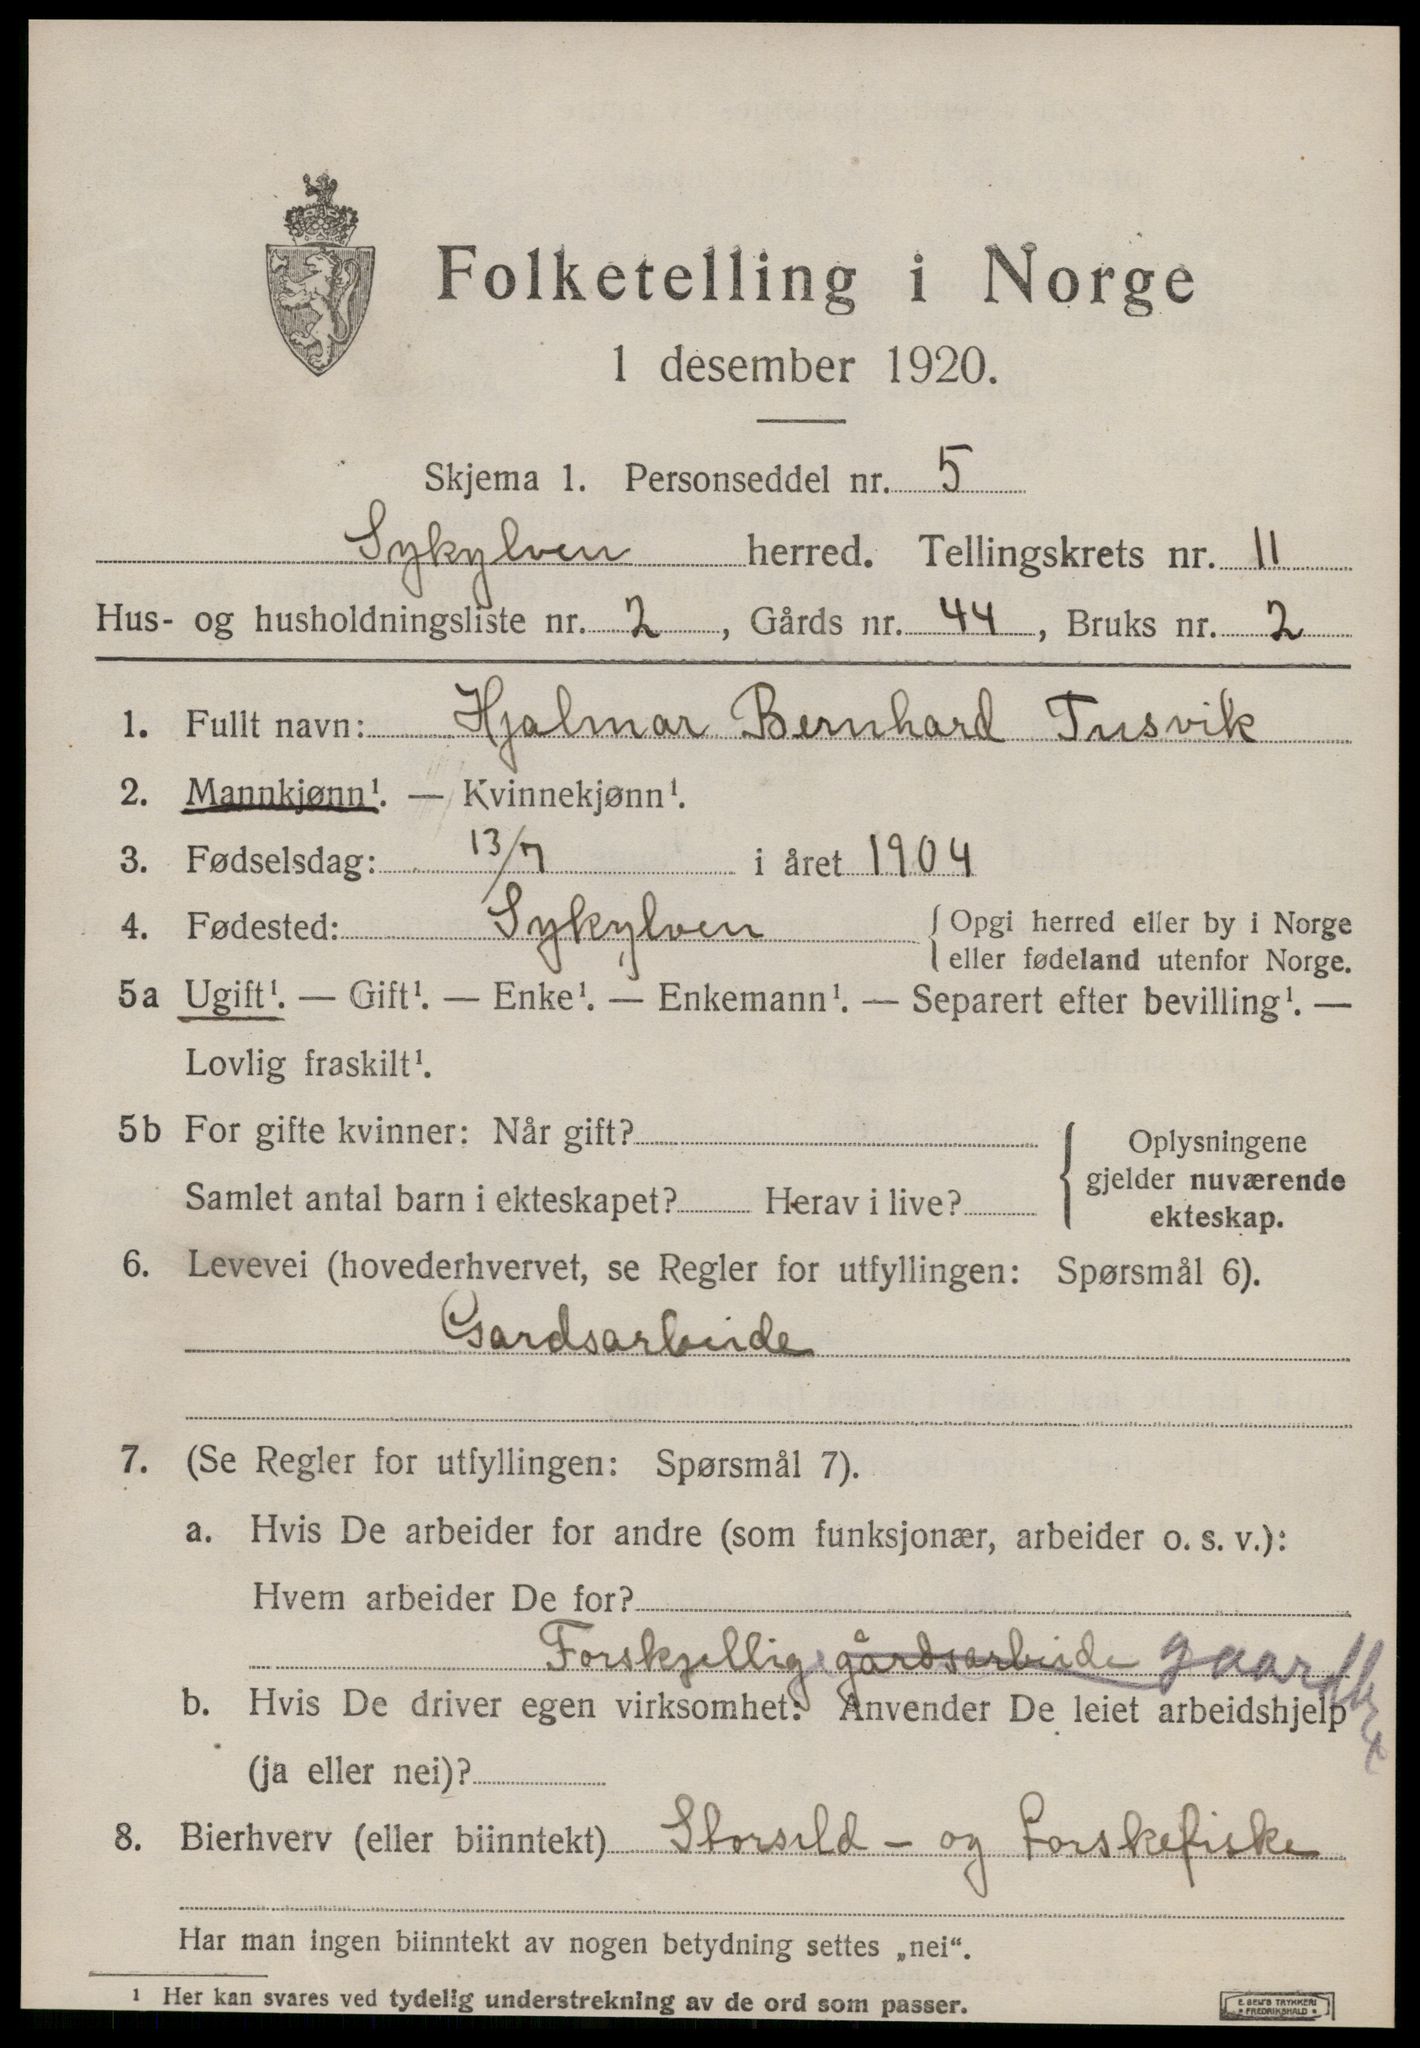 Folketelling i Norge
1 desember 1920.
Skjema 1. Personseddel nr. 5
Sykylven herred. Tellingskrets nr. 11
Hus- og husholdningsliste nr. 2, Gårds nr. 44, Bruks nr. 2
1. Fullt navn: Hjalmar Bernhard Tusvik
2. Mannkjønn¹. — Kvinnekjønn¹.
3. Fødselsdag: 13/7 i året 1904
4. Fødested: Sykylven { Opgi herred eller by i Norge
eller fødeland utenfor Norge.
5a Ugift¹. — Gift¹. — Enke¹. — Enkemann¹. — Separert efter bevilling¹. —
Lovlig fraskilt¹.
5b For gifte kvinner: Når gift?
Samlet antal barn i ekteskapet? Herav i live?
{ Oplysningene
gjelder nuværende
ekteskap.
6. Levevei (hovederhvervet, se Regler for utfyllingen: Spørsmål 6).
Gardsarbeide
7. (Se Regler for utfyllingen: Spørsmål 7).
a. Hvis De arbeider for andre (som funksjonær, arbeider o. s. v.):
Hvem arbeider De for?
Forskjellig gårdsarbeide
b. Hvis De driver egen virksomhet: Anvender De leiet arbeidshjelp
(ja eller nei)?
8. Bierhverv (eller biinntekt) Storsild - og Torskefiske
Har man ingen biinntekt av nogen betydning settes „nei“.
¹ Her kan svares ved tydelig understrekning av de ord som passer.
E. SEM'S TRYKKERI
FREDRIKSHALD